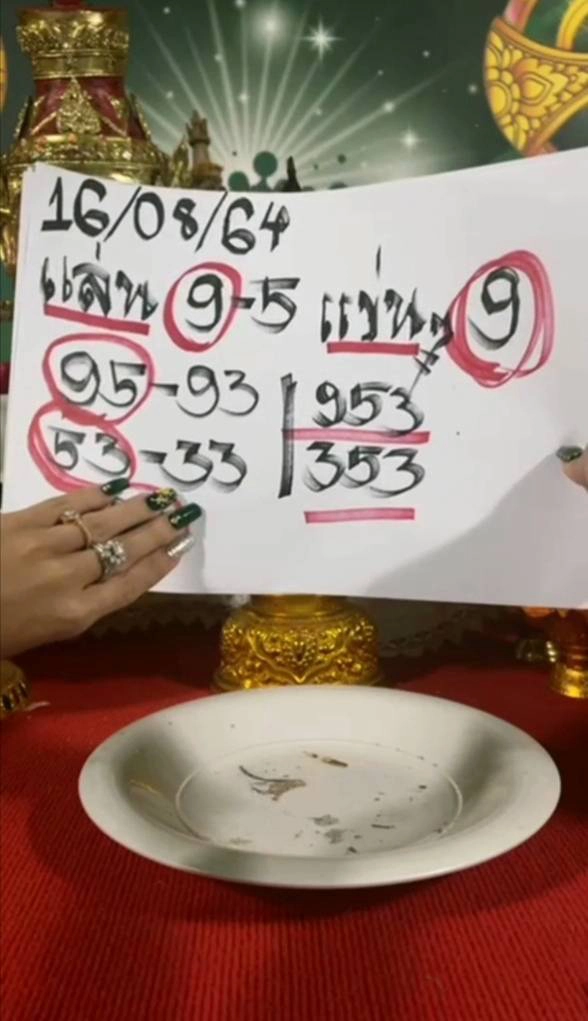 16/08/64
เล่น 9-5 แม่นๆ 9
95-93 953
53-33 353